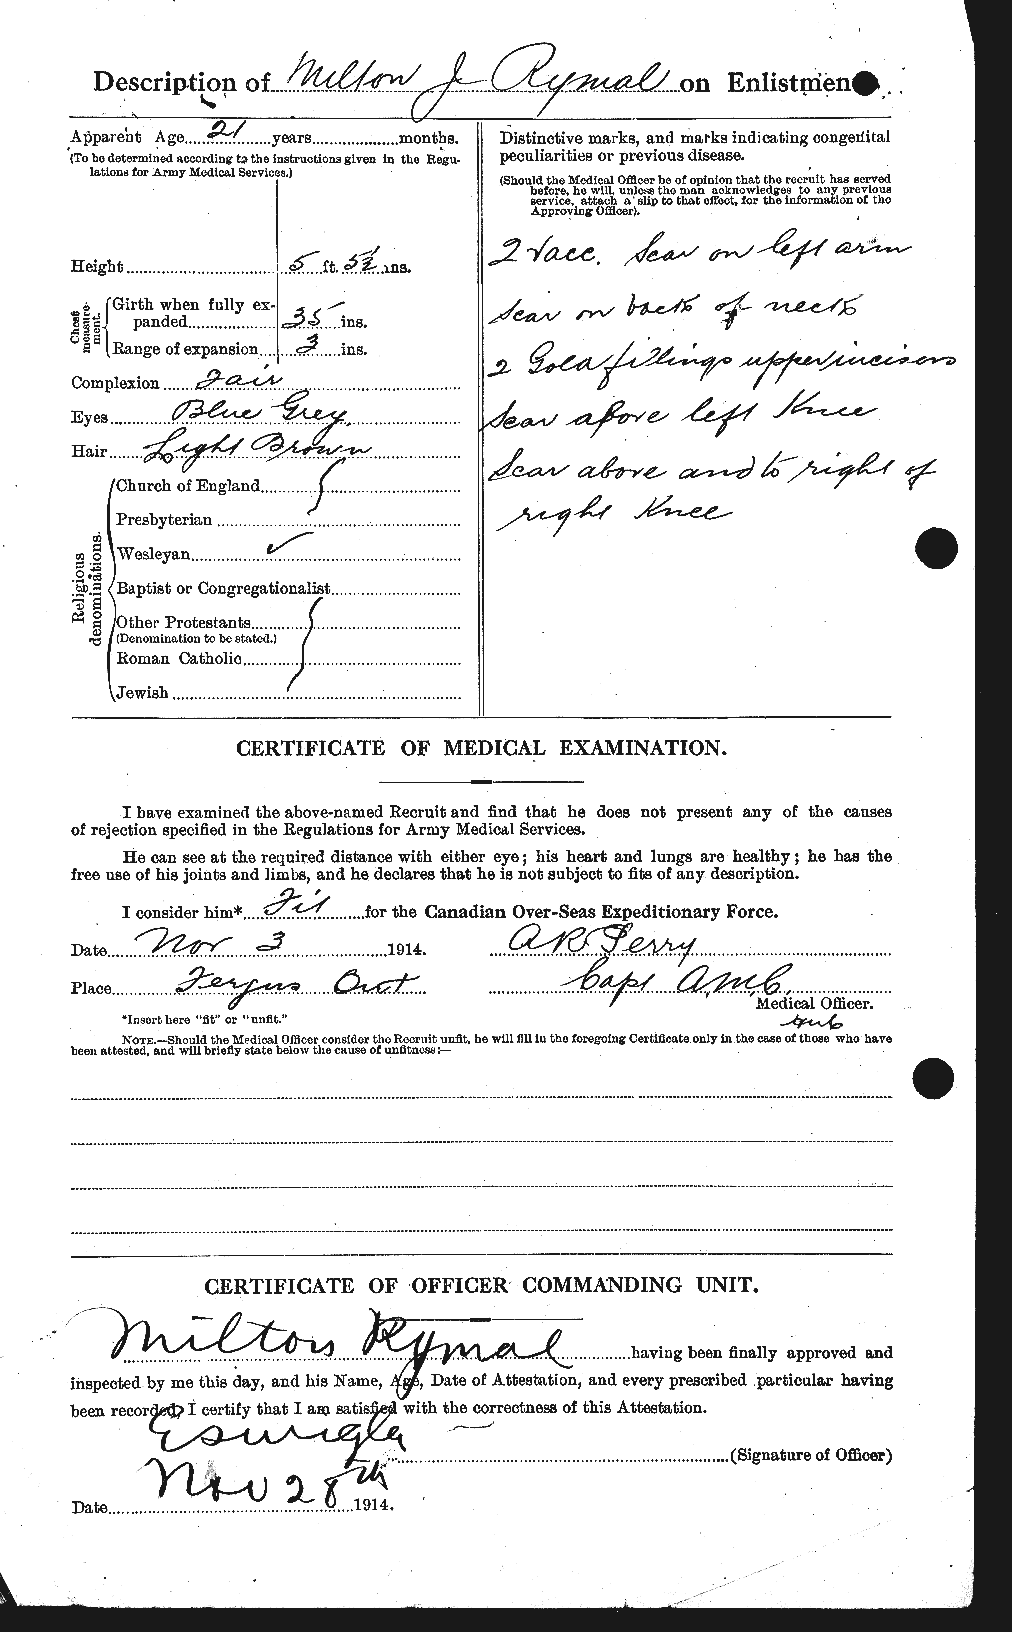 Description of Milton J Rymal on Enlistmen
Apparent Age 21 years months.
(To be determined according to the instructions given in the Regu-
lations for Army Medical Services.)
Height 5 ft. 5½ ins.
Chest measurement.
Girth when fully ex-
panded 35 ins.
Range of expansion 3 ins.
Complexion Fair
Eyes Blue Grey
Hair Light Brown
Religious denominations.
Church of England
Presbyterian
Wesleyan ✓
Baptist or Congregationalist
Other Protestants
(Denomination to be stated.)
Roman Catholic
Jewish
Distinctive marks, and marks indicating congenital
peculiarities or previous disease.
(Should the Medical Officer be of opinion that the recruit has served
before, he will, unless the man acknowledges to any previous
service, attach a slip to that effect, for the information of the
Approving Officer).
2 Vacc. Scar on left arm
Scar on back of neck
2 Gold fillings upper incisors
Scar above left Knee
Scar above and to right of
right Knee
CERTIFICATE OF MEDICAL EXAMINATION.
I have examined the above-named Recruit and find that he does not present any of the causes
of rejection specified in the Regulations for Army Medical Services.
He can see at the required distance with either eye; his heart and lungs are healthy; he has the
free use of his joints and limbs, and he declares that he is not subject to fits of any description.
I consider him* Fit for the Canadian Over-Seas Expeditionary Force.
Date Nov 3 1914. A R Perry
Place Fergus Ont Capt A.M.C.
Medical Officer.
*Insert here "fit" or "unfit."
NOTE.—Should the Medical Officer consider the Recruit unfit, he will fill in the foregoing Certificate only in the case of those who have
been attested, and will briefly state below the cause of unfitness:—
CERTIFICATE OF OFFICER COMMANDING UNIT.
Milton Rymal having been finally approved and
inspected by me this day, and his Name, Age, Date of Attestation, and every prescribed particular having
been recorded, I certify that I am satisfied with the correctness of this Attestation.
(Signature of Officer)
Date Nov 28th 1914.